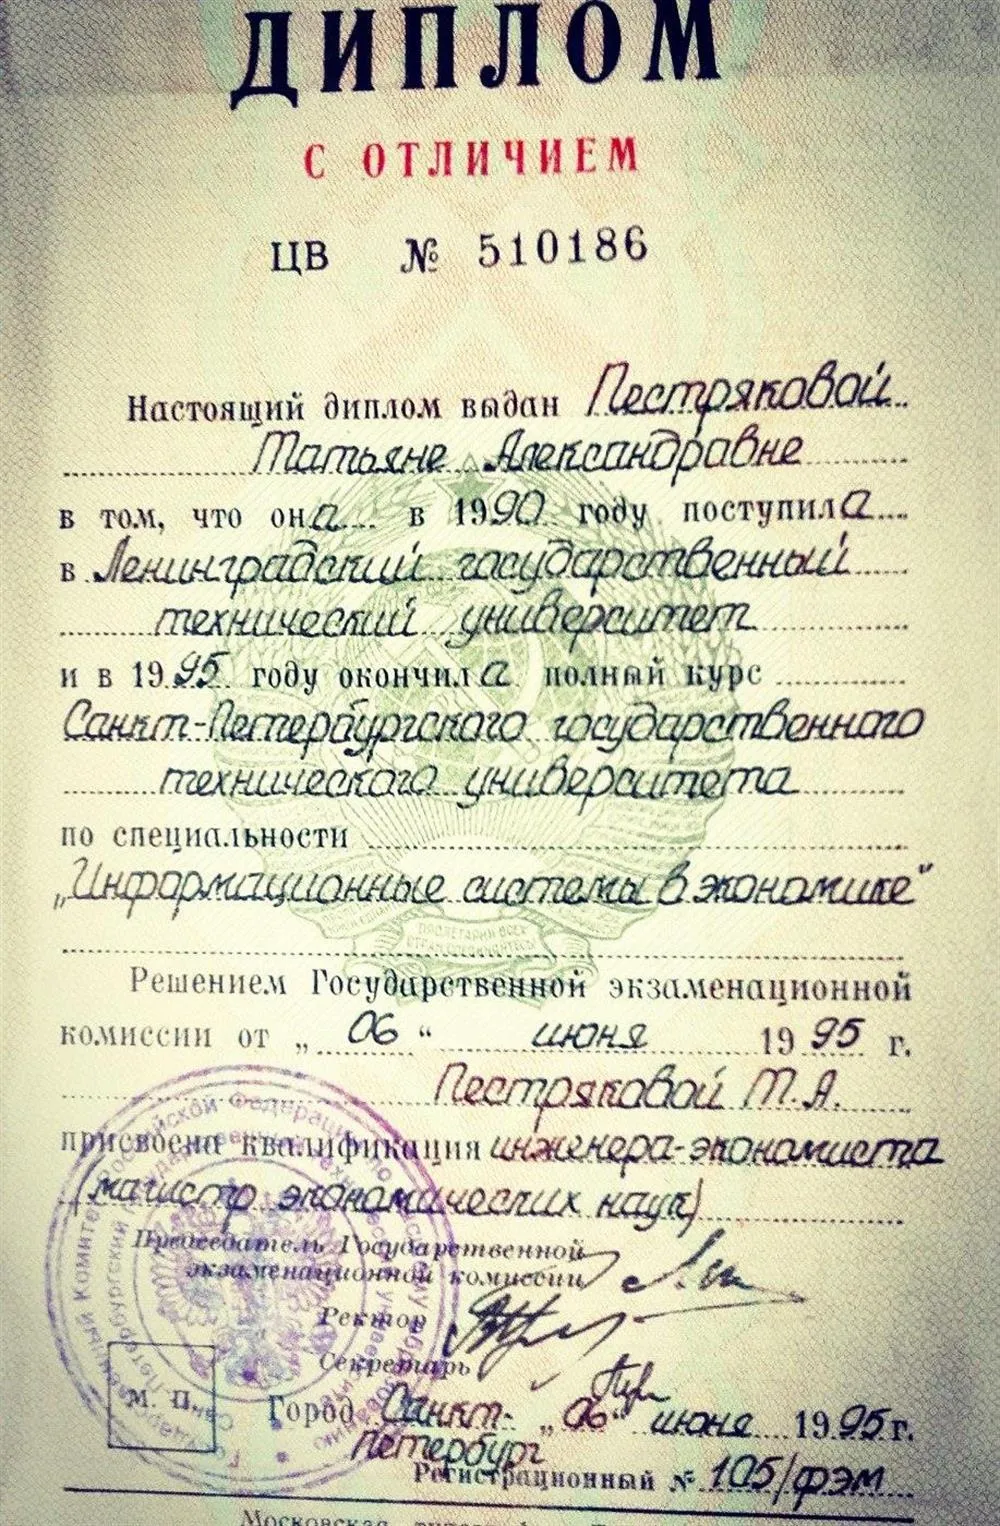 ДИПЛОМ
С ОТЛИЧИЕМ
ЦВ № 510186
Настоящий диплом выдан Пестряковой
Татьяне Александравне
в том, что она в 1990 году поступила
в Ленинградский государственный
технический университет
и в 1995 году окончила полный курс
Санкт-Петербургского государственного
технического университета
по специальности
„Информационные системы в экономике"
Решением Государственной экзаменационной
комиссии от „06“ июня 1995 г.
Пестряковой Т.А.
присвоена квалификация инженера-экономиста
(магистр экономических наук)
Председатель Государственной
экзаменационной комиссии
Ректор
Секретарь
М. П.
Город Санкт-Петербург „06“ июня 1995 г.
Регистрационный № 105/фэм
Московская